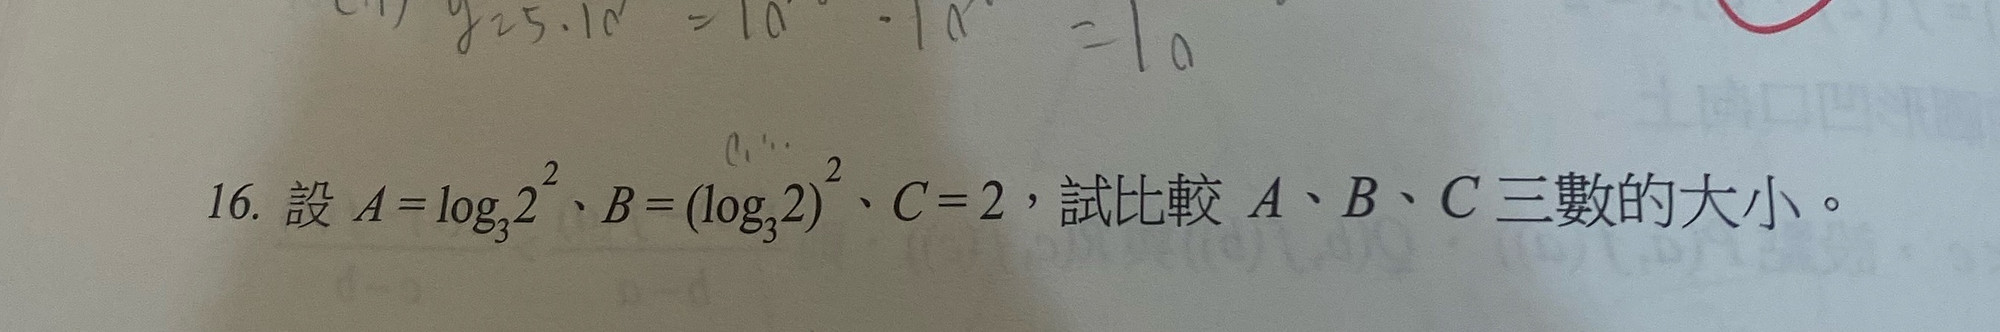 y=5·10 = 10 · 10 = 10
16. 設 A=log₃2²、B=(log₃2)²、C=2，試比較 A、B、C 三數的大小。